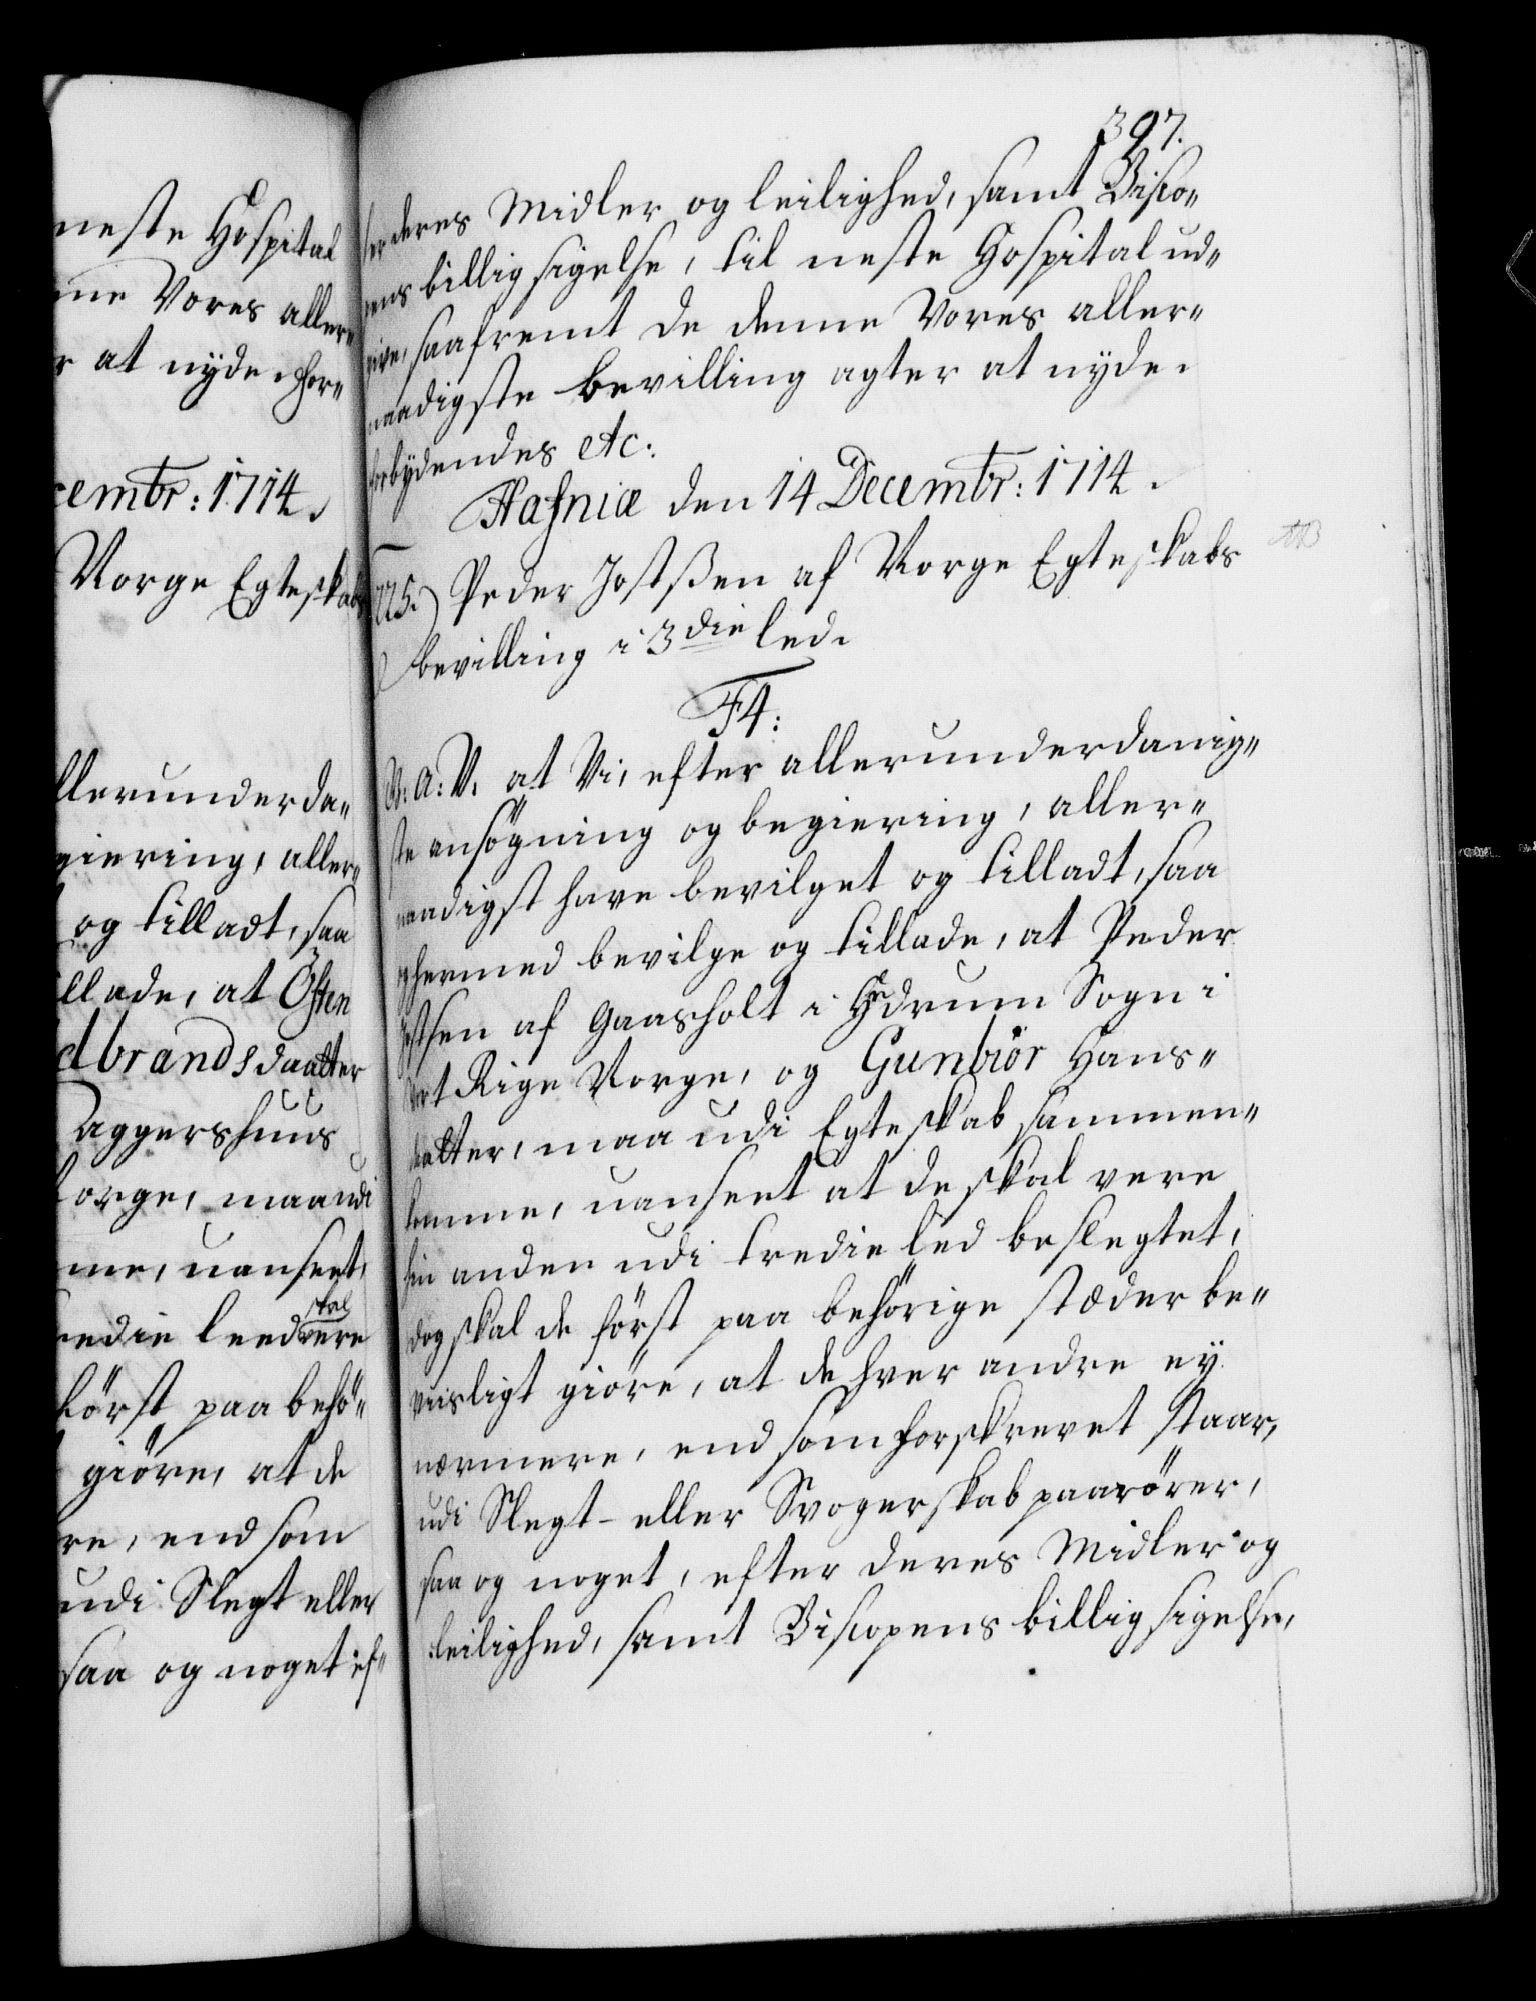 neste Hospital
Vores aller=
at nyde. For=
cembr: 1714.
Norge Egteskabs
allerunderda=
giering, aller=
og tilladt, saa
llade, at Östen
dbrandsdaatter
Aggershuus
Norge, maa udi
me, uanseet,
redie leed skal vere
först paa behö=
giöre, at de
re, end som
udi Slegt eller
saa og noget ef=
397.
ter deres Midler og leilighed, samt Bisco=
pens billigsigelse, til neste Hospital ud=
give, saafremt de denne Vores aller=
naadigste bevilling agter at nyde.
Forbydendes etc:
Hafniæ den 14 Decembr: 1714.
225.) Peder Jostßen af Norge Egteskabs
bevilling i 3die led.
F4:
G: A: V. at Vi, efter allerunderdanig=
ste ansögning og begiering, aller=
naadigst have bevilget og tilladt, saa
og hermed bevilge og tillade, at Peder
Jostsen af Gaasholt i Hedrum Sogn i
Vort Rige Norge, og Gunbiör Hans=
daatter, maa udi Egteskab sammen=
komme, uanseet at de skal vere
hin anden udi tredie led beslegtet,
dog skal de först paa behörige stæder be=
viisligt giöre, at de hver andre ey
nærmere, end som forskrevet staar,
udi Slegt- eller Svogerskab paarörer,
saa og noget, efter deres Midler og
leilighed, samt Biscopens billigsigelse,